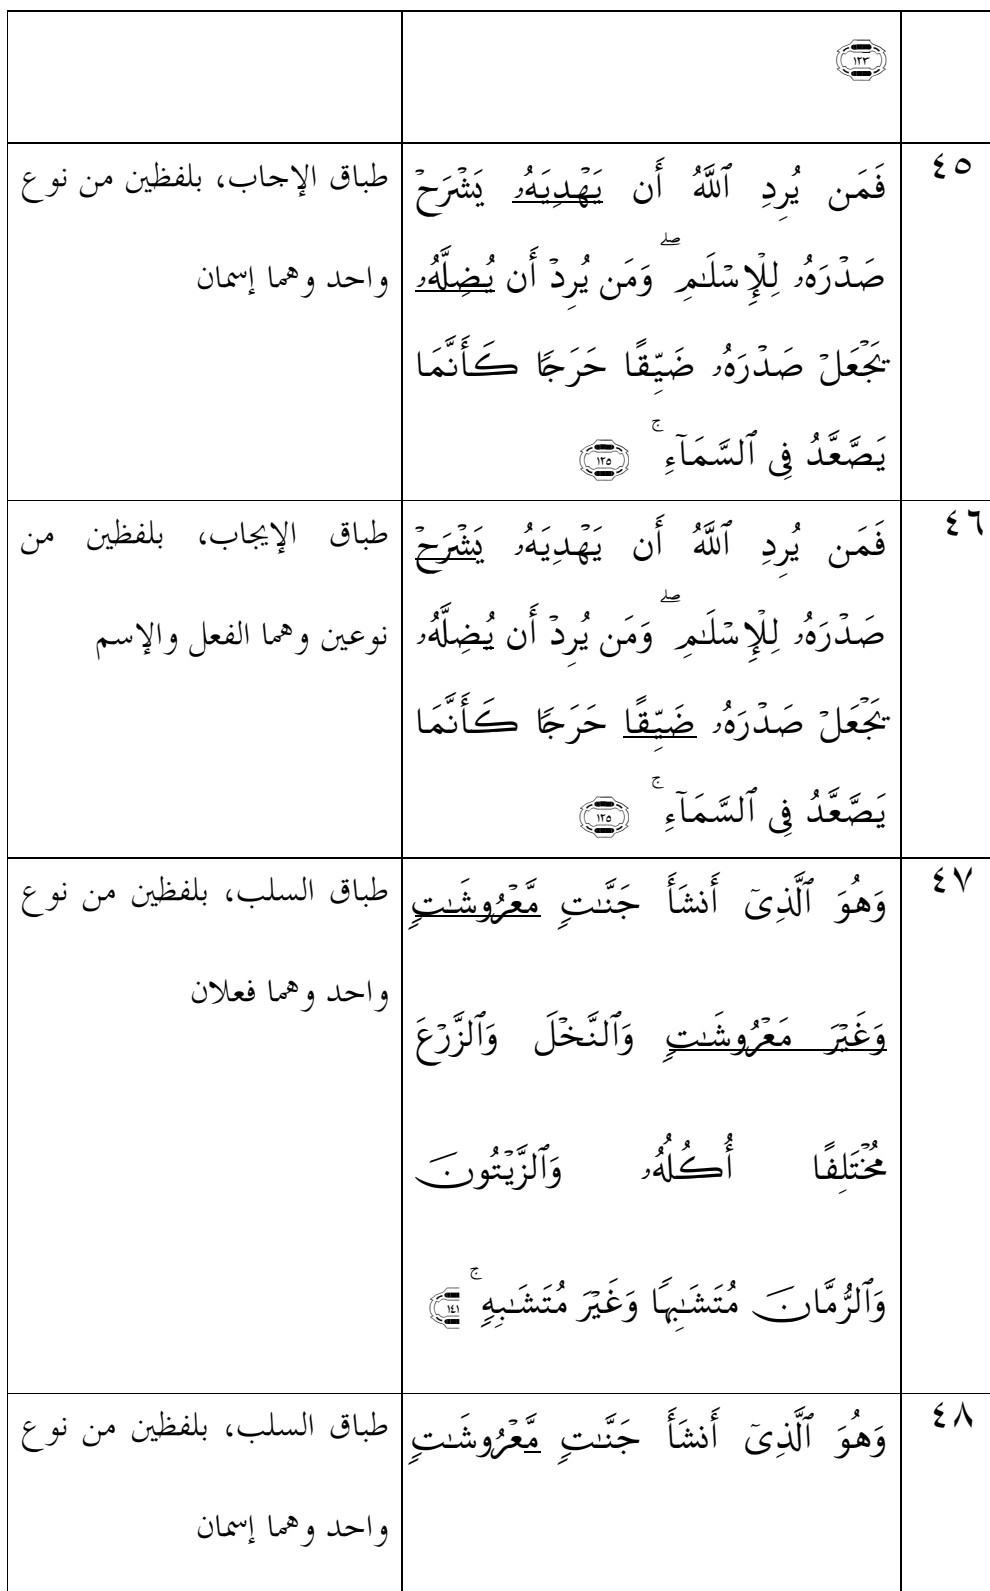 ﴿١٢٣﴾
٤٥
فَمَن يُرِدِ ٱللَّهُ أَن يَهْدِيَهُۥ يَشْرَحْ
صَدْرَهُۥ لِلْإِسْلَـٰمِ ۖ وَمَن يُرِدْ أَن يُضِلَّهُۥ
يَجْعَلْ صَدْرَهُۥ ضَيِّقًا حَرَجًا كَأَنَّمَا
يَصَّعَّدُ فِى ٱلسَّمَآءِ ۚ ﴿١٢٥﴾
طباق الإجاب، بلفظين من نوع
واحد وهما إسمان
٤٦
فَمَن يُرِدِ ٱللَّهُ أَن يَهْدِيَهُۥ يَشْرَحْ
صَدْرَهُۥ لِلْإِسْلَـٰمِ ۖ وَمَن يُرِدْ أَن يُضِلَّهُۥ
يَجْعَلْ صَدْرَهُۥ ضَيِّقًا حَرَجًا كَأَنَّمَا
يَصَّعَّدُ فِى ٱلسَّمَآءِ ۚ ﴿١٢٥﴾
طباق الإيجاب، بلفظين من
نوعين وهما الفعل والإسم
٤٧
وَهُوَ ٱلَّذِىٓ أَنشَأَ جَنَّـٰتٍ مَّعْرُوشَـٰتٍ
وَغَيْرَ مَعْرُوشَـٰتٍ وَٱلنَّخْلَ وَٱلزَّرْعَ
مُخْتَلِفًا أُكُلُهُۥ وَٱلزَّيْتُونَ
وَٱلرُّمَّانَ مُتَشَـٰبِهًا وَغَيْرَ مُتَشَـٰبِهٍ ۚ ﴿١٤١
طباق السلب، بلفظين من نوع
واحد وهما فعلان
٤٨
وَهُوَ ٱلَّذِىٓ أَنشَأَ جَنَّـٰتٍ مَّعْرُوشَـٰتٍ
طباق السلب، بلفظين من نوع
واحد وهما إسمان